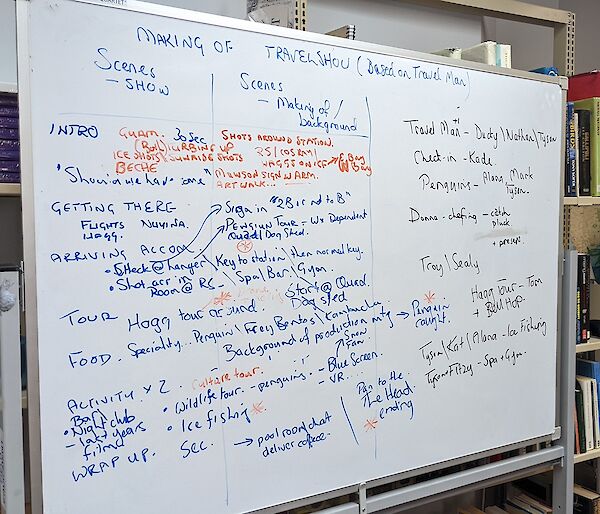 MAKING OF TRAVELSHOW (Based on Travel Man)
Scenes
- SHOW
Scenes
- Making of /
background
INTRO
Guam. 30 sec
SHOTS AROUND STATION.
ICE SHOTS
SHOTS
BECHE
HAGG ON ICE
E Bay
W Bay
MAWSON SIGN W ARM.
ART WALK...
"Should we have come"
GETTING THERE
FLIGHTS NUYINA.
HAGG.
Sign in "2B is not to B"
PENGUIN TOUR - Wx Dependent
Quad / Dog Shed.
ARRIVING ACCOM
• Check @ hanger \ Key to station \ then normal key.
• Shot arr in
Room @ RS - Spa \ Bar \ Gym
Start @ Quad.
Dog shed
TOUR Hogg tour around.
FOOD. Speciality... Penguin \ Frey Bentos \ Kambucha
- Background of production mtg
Penguin
caught.
ACTIVITY x 2.
Culture tour.
Bar \
• Night club
- last years
films
• Wildlife tour. - penguins. - Blue Screen
- VR....
Snow
• Ice fishing
WRAP UP. Sec.
→ pool room chat
deliver coffee.
Pan to the
The Head
ending
Travel Man - Dusty \ Nathan \ Tyson
Check-in - Kade.
Penguins - Alana, Mark
Tyson.
Donna - chefing - catch
pluck
+ present.
Troy \ Sealy
Hagg Tour - Tom
+ Bell HOP.
Tyson \ Kat \ Alana - Ice Fishing
Tyson + Fitzy - Spa + Gym.